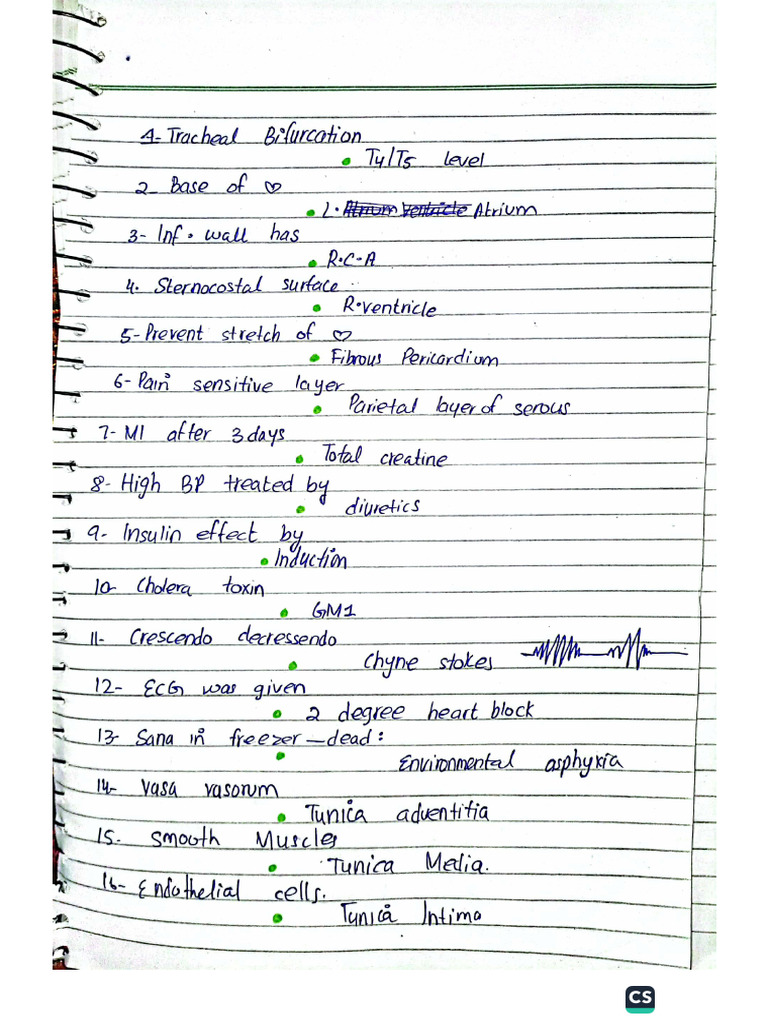 1- Tracheal Bifurcation
• T4/T5 level
2- Base of ♡
• L. Atrium Ventricle Atrium
3- Inf. wall has
• R.C.A
4. Sternocostal surface.
• R.ventricle
5- Prevent stretch of ♡
• Fibrous Pericardium
6- Pain sensitive layer
• Parietal layer of serous
7- MI after 3 days
• Total creatine
8- High BP treated by
• diuretics
9- Insulin effect by
• Induction
10- Cholera toxin
• GM1
11- Crescendo decressendo
• Chyne stokes
12- ECG was given
• 2 degree heart block
13- Sana in freezer – dead:
• Environmental asphyxia
14- Vasa vasorum
• Tunica adventitia
15. Smooth Muscles
• Tunica Media.
16- Endothelial cells.
• Tunica Intima
CS